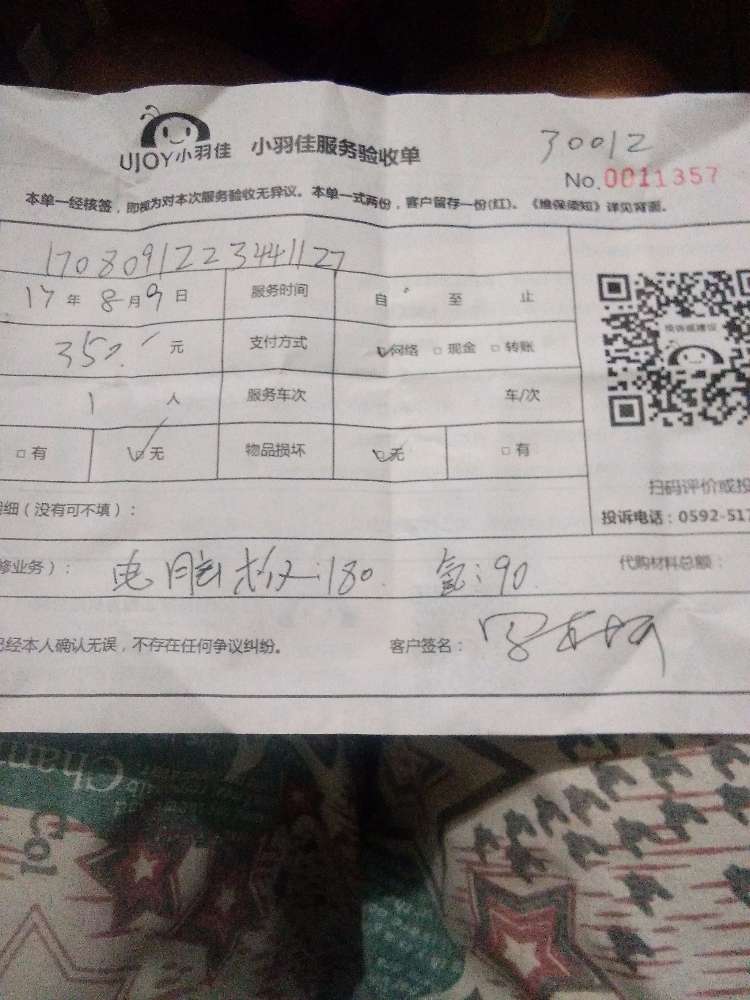 UJOY小羽佳 小羽佳服务验收单
30012
No.0011357
本单一经核签，即视为对本次服务验收无异议。本单一式两份，客户留存一份(红)。《维保须知》详见背面。
1708091223441127
17年8月9日 服务时间 自 至 止
元 支付方式 网络 现金 转账
1 人 服务车次 车/次
有 无 物品损坏 无 有
扫码评价或投
明细（没有可不填）：
投诉电话：0592-517
修业务）： 电脑板:180. 氩:90. 代购材料总额：
已经本人确认无误，不存在任何争议纠纷。 客户签名：
Chan
Col